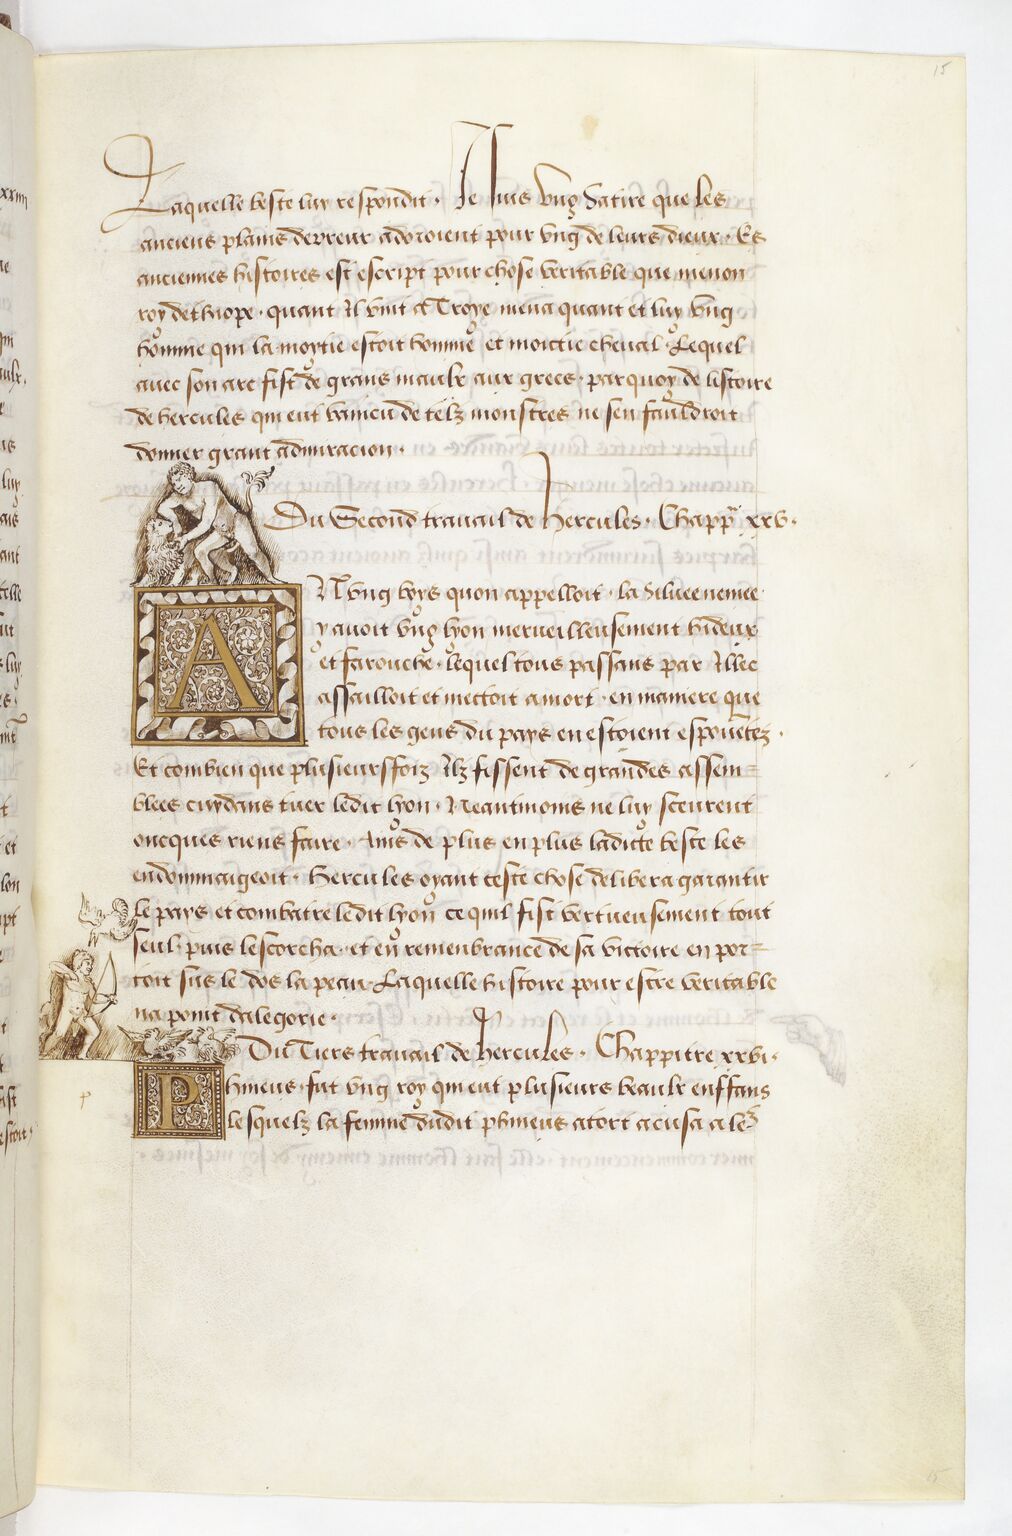 15
Laquelle beste luy respondit · Je suis vng Satire que les
anciens plains derreur adoroient pour vng de leurs dieux · Es
anciennes histoires est escript pour chose veritable que menon
roy dethiope · quant Il vint a Troye mena quant et luy vng
homme qui la moytie estoit homme et moictie cheual · Lequel
auec son arc fist de grans maulx aux grecs · parquoy de listoire
de hercules qui eut vaincu de telz monstres ne sen fauldroit
donner grant admiracion ·
Du Second trauail de hercules · Chapp̃ xxv ·
AN vng boys quon appelloit · la Siluee nemee
y auoit vng lyon merueilleusement hideux
et farouche · lequel tous passans par Illec
assailloit et mectoit a mort · en maniere que
tous les gens du pays en estoient espouetez ·
Et combien que plusieursfoiz Ilz fissent de grandes assem=
blees cuydans tuer ledit lyon · Neantmoins ne luy sceurent
oncques riens faire · Ains de plus en plus ladicte beste les
endommaigeoit · Hercules oyant ceste chose delibera garantir
le pays et combatre ledit lyon ce quil fist vertueusement tout
seul · puis lescorcha · et en remenbrance de sa victoire en por=
toit sus le dos la peau · Laquelle histoire pour estre veritable
na point dalegorie ·
Du Tiers trauail de hercules · Chappitre xxvi ·
Phineus · fut vng roy qui eut plusieurs beaulx enffans
lesquelz la femme dudit phineus a tort acusa a le
15